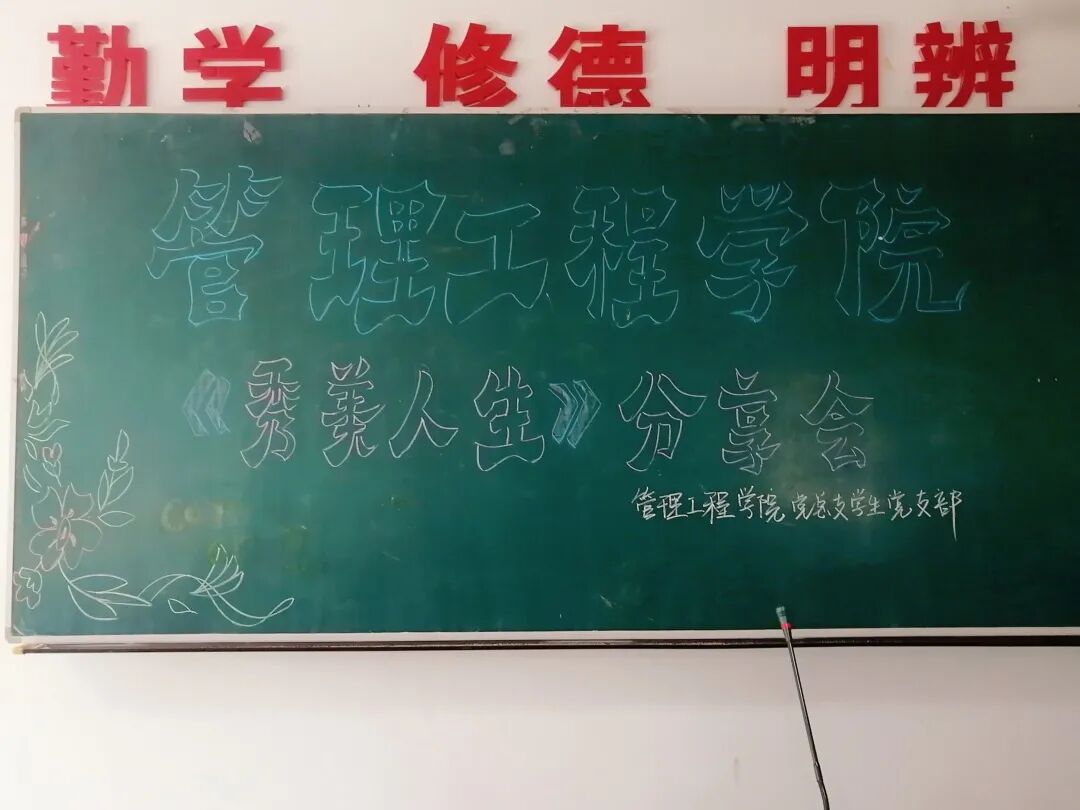 勤学 修德 明辨
管理工程学院
《秀美人生》分享会
管理工程学院党总支学生党支部